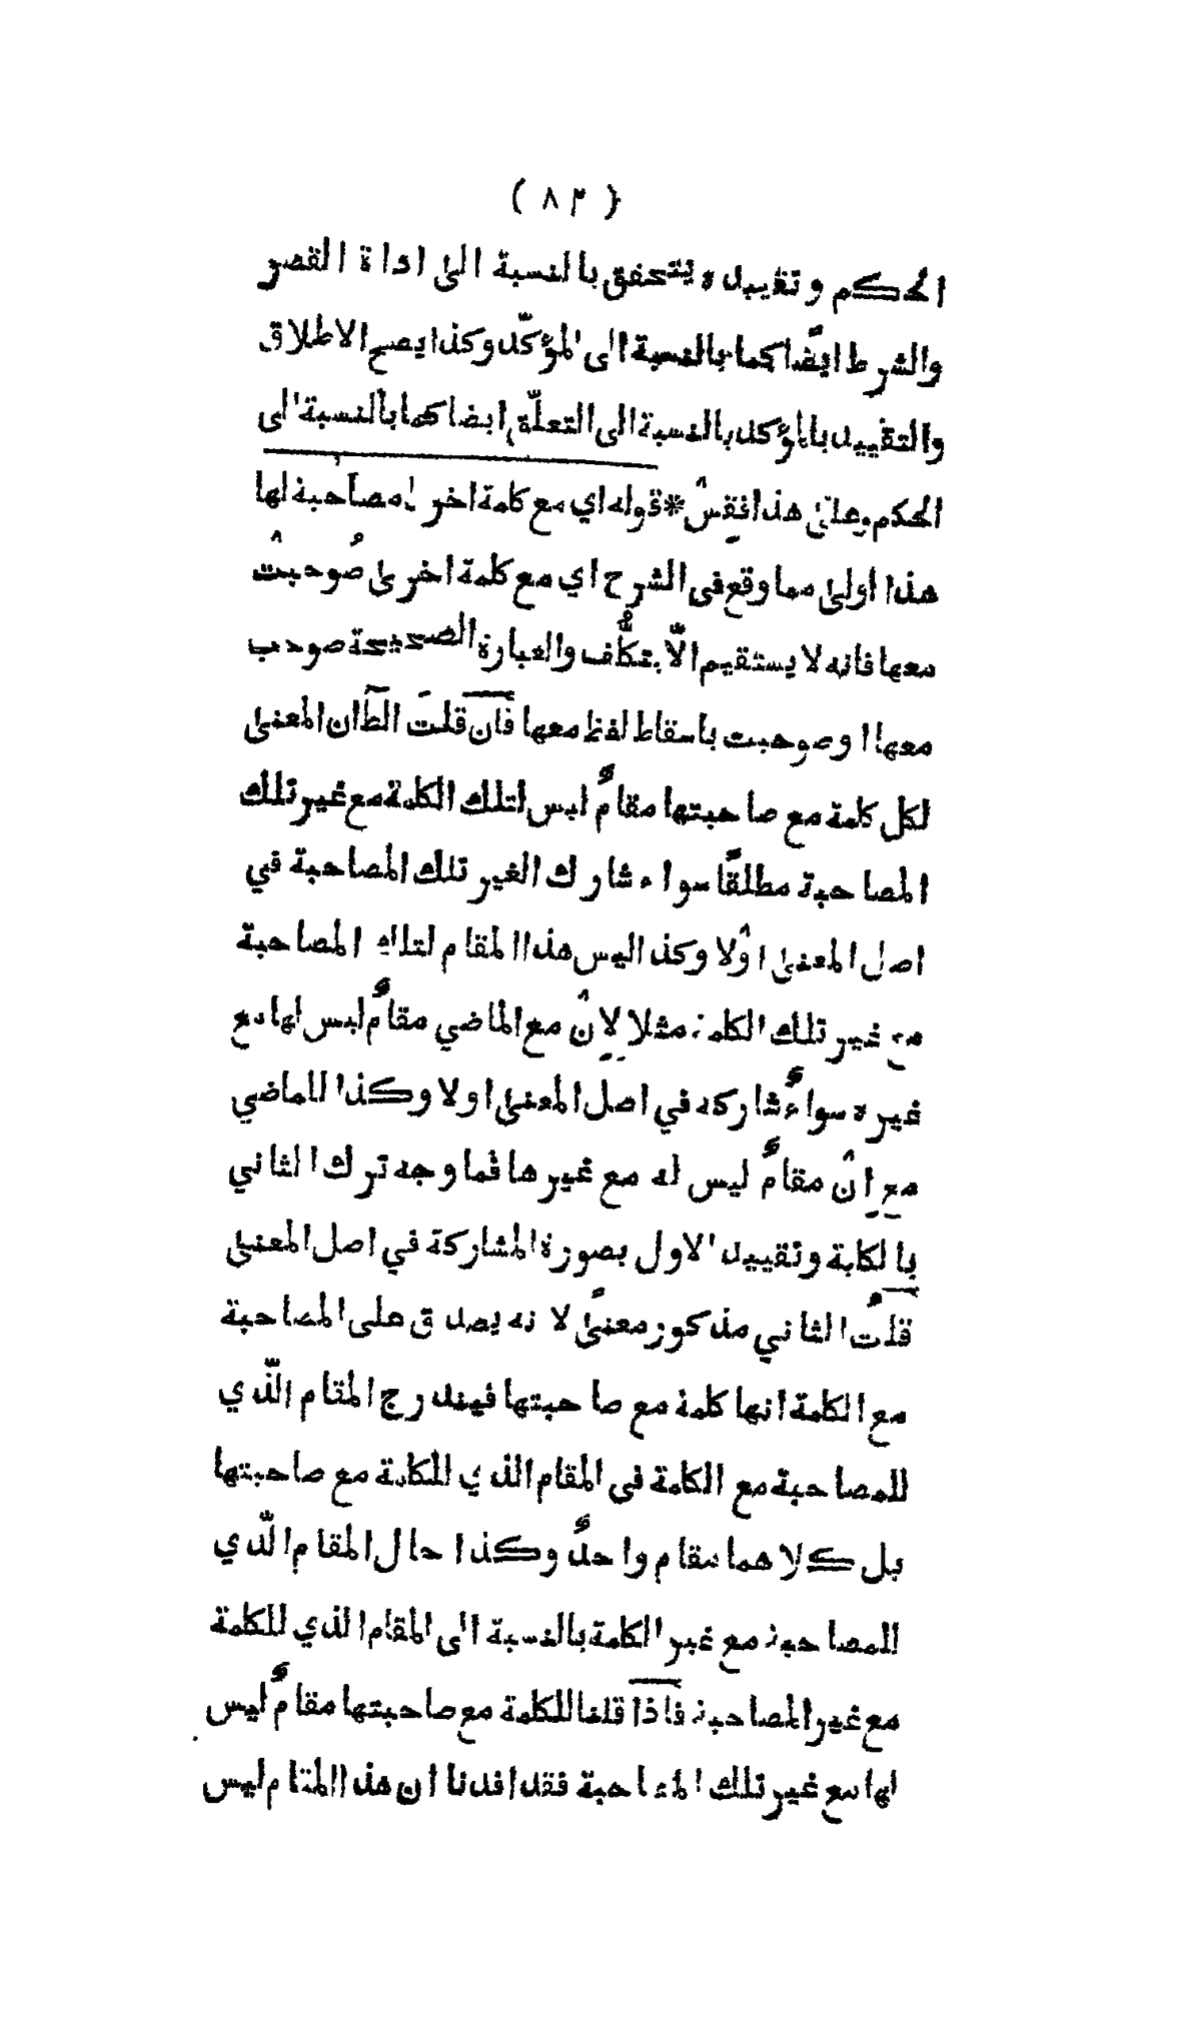 ( ٨٣ )
الحكم وتقييده يتحقق بالنسبة الى اداة القصر
والشرط ايضًا كما بالنسبة الى المؤكّد وكذا يصح الاطلاق
والتقييد بالمؤكد بالنسبة الى التعلّق ايضا كما بالنسبة الى
الحكم وعلى هذا فقِسْ * قوله اي مع كلمة اخرى مصاحبة لها
هذا اولى مما وقع في الشرح اي مع كلمة اخرى صُوحبتْ
معها فانه لا يستقيم الّا بتكلُّف والعبارة الصحيحة صوحب
معها او صوحبت باسقاط لفظ معها فان قلتَ الظٓ ان المعنى
لكل كلمة مع صاحبتها مقامٌ ليس لتلك الكلمة مع غير تلك
المصاحبة مطلقًا سواء شارك الغير تلك المصاحبة في
اصل المعنى اوْلا وكذا ليس هذا المقام لتلك المصاحبة
مع غير تلك الكلمة مثلا لِاِنْ مع الماضي مقامٌ ليس لها مع
غيره سواءٌ شاركه في اصل المعنى اولا وكذا للماضي
مع اِنْ مقامٌ ليس له مع غيرها فما وجه ترك الثاني
بالكلية وتقييد الاول بصورة المشاركة في اصل المعنى
قلتُ الثاني مذكور معنىً لانه يصدق على المصاحبة
مع الكلمة انها كلمة مع صاحبتها فيندرج المقام الّذي
للمصاحبة مع الكلمة في المقام الذي للكلمة مع صاحبتها
بل كلاهما مقام واحدٌ وكذا حال المقام الّذي
للمصاحبة مع غير الكلمة بالنسبة الى المقام الذي للكلمة
مع غير المصاحبة فاذا قلنا للكلمة مع صاحبتها مقامٌ ليس
لها مع غير تلك المصاحبة فقد افدنا ان هذا المقام ليس